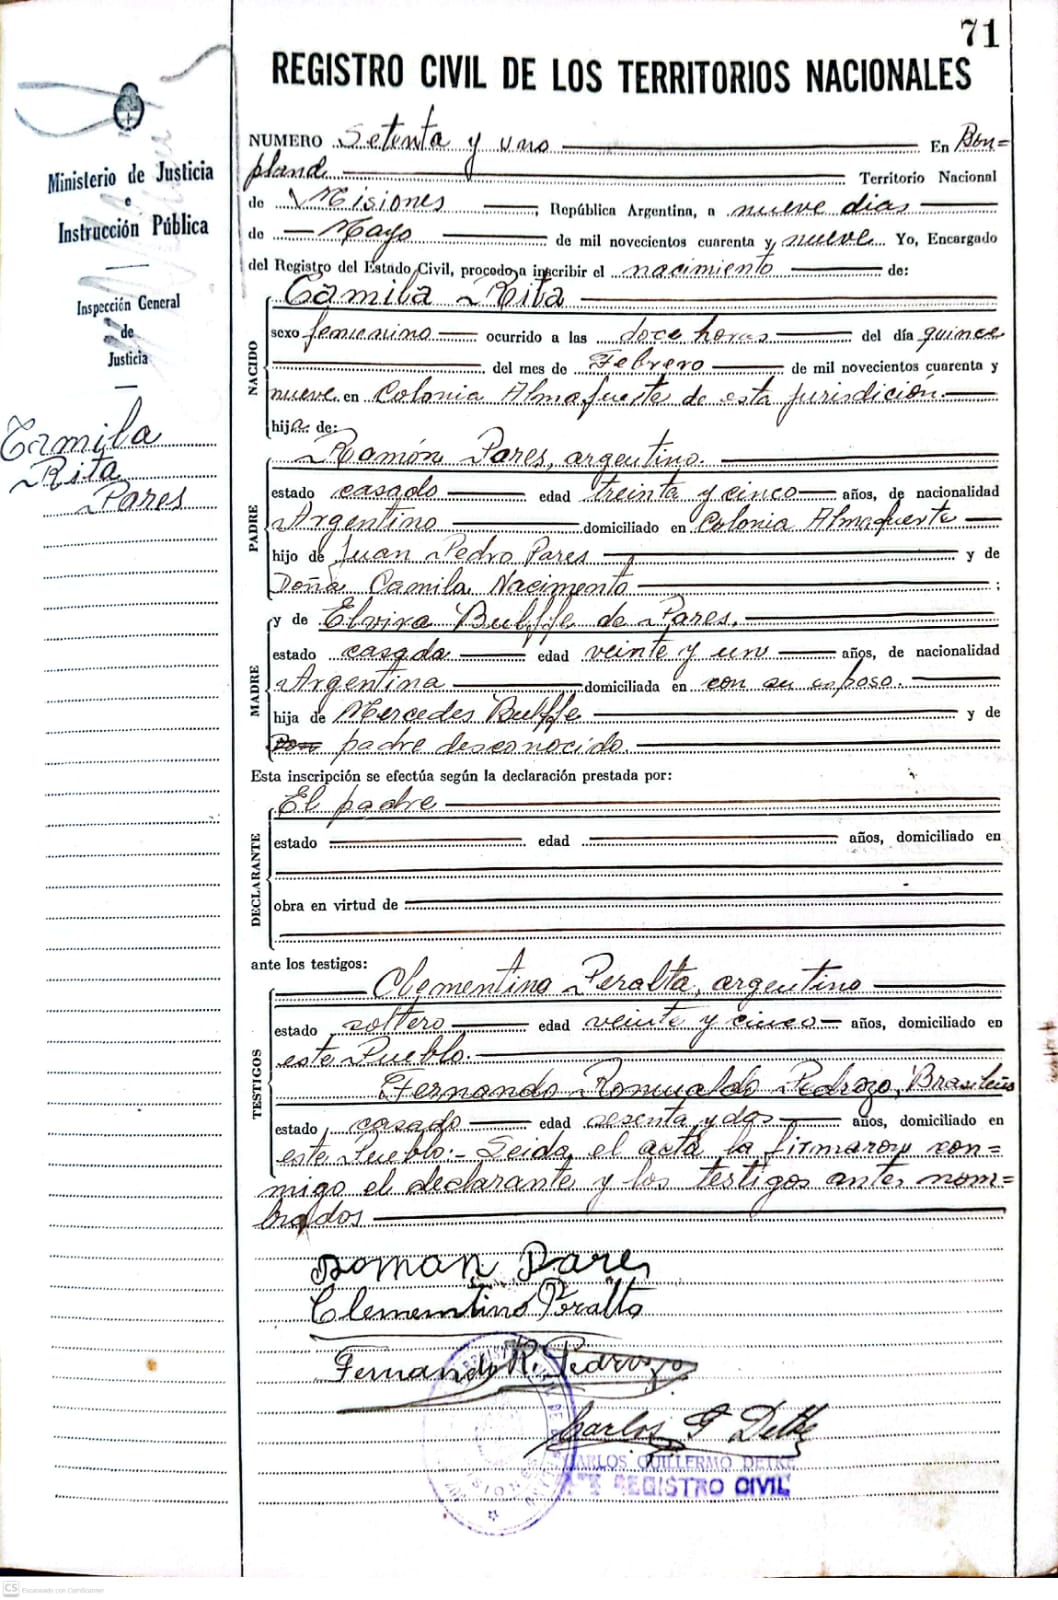 71
REGISTRO CIVIL DE LOS TERRITORIOS NACIONALES
Ministerio de Justicia
e
Instrucción Pública
Inspección General
de
Justicia
Camila
Rita
Pares
NUMERO Setenta y uno En Bon=
pland. Territorio Nacional
de Misiones, República Argentina, a nueve dias
de Mayo de mil novecientos cuarenta y nueve Yo, Encargado
del Registro del Estado Civil, procedo a inscribir el nacimiento de:
NACIDO
Camila Rita
sexo femenino ocurrido a las doce horas del día quince
del mes de Febrero de mil novecientos cuarenta y
nueve en Colonia Almafuerte de esta jurisdicción.
hija de:
PADRE
Ramón Pares, argentino.
estado casado edad treinta y cinco años, de nacionalidad
Argentino domiciliado en Colonia Almafuerte
hijo de Juan Pedro Pares y de
Doña Camila Nacimento ;
MADRE
y de Elvira Bulffe de Pares.
estado casada edad veinte y uno años, de nacionalidad
Argentina domiciliada en con su esposo.
hija de Mercedes Bulffe y de
Don padre desconocido.
Esta inscripción se efectúa según la declaración prestada por:
DECLARANTE
El padre
estado edad años, domiciliado en
obra en virtud de
ante los testigos:
TESTIGOS
Clementino Peralta, argentino
estado soltero edad veinte y cinco años, domiciliado en
este Pueblo.
Fernando Romualdo Pedrozo, Brasileño
estado casado edad sesenta y dos años, domiciliado en
este Pueblo.- Leida el acta la firmaron con=
migo el declarante y los testigos antes nom=
brados
Roman Pares
Clementino Peralta
Fernando R. Pedrozo
Carlos G Detke
CARLOS GUILLERMO DETKE
REGISTRO CIVIL
CS Escaneado con CamScanner